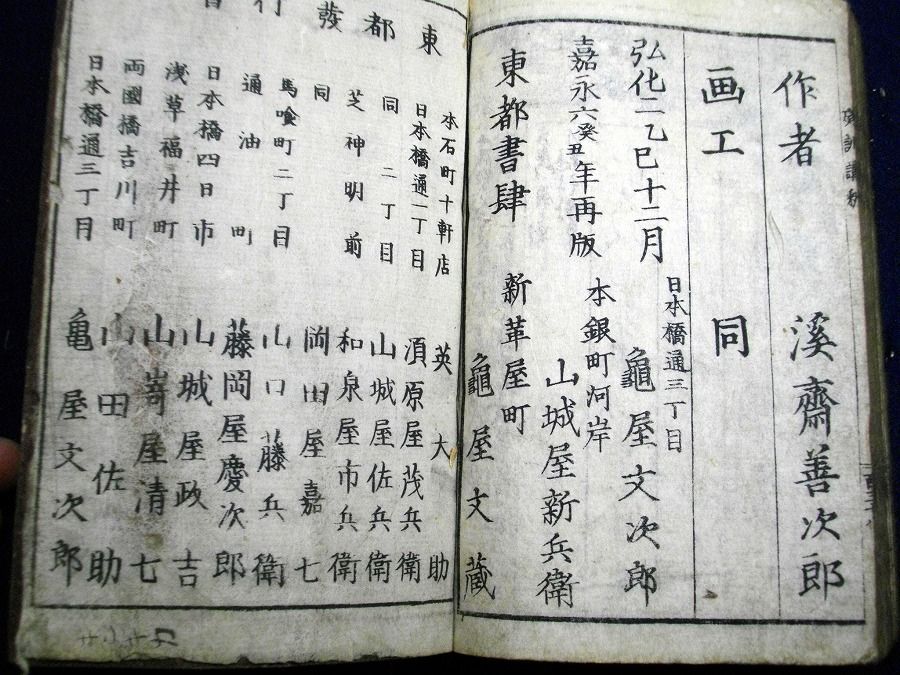 作者 溪齋善次郎
画工 同
弘化二乙巳十二月
嘉永六癸丑年再版
東都書肆
日本橋通三丁目
龜屋文次郎
本銀町河岸
山城屋新兵衛
新革屋町
龜屋文藏
東都發行
本石町十軒店 英大助
日本橋通一丁目 須原屋茂兵衛
同二丁目 山城屋佐兵衛
芝神明前 和泉屋市兵衛
同 岡田屋嘉七
馬喰町二丁目 山口藤兵衛
通油町 藤岡屋慶次郎
日本橋四日市 山城屋政吉
浅草福井町 山嵜屋清七
両國橋吉川町 山田佐助
日本橋通三丁目 亀屋文次郎